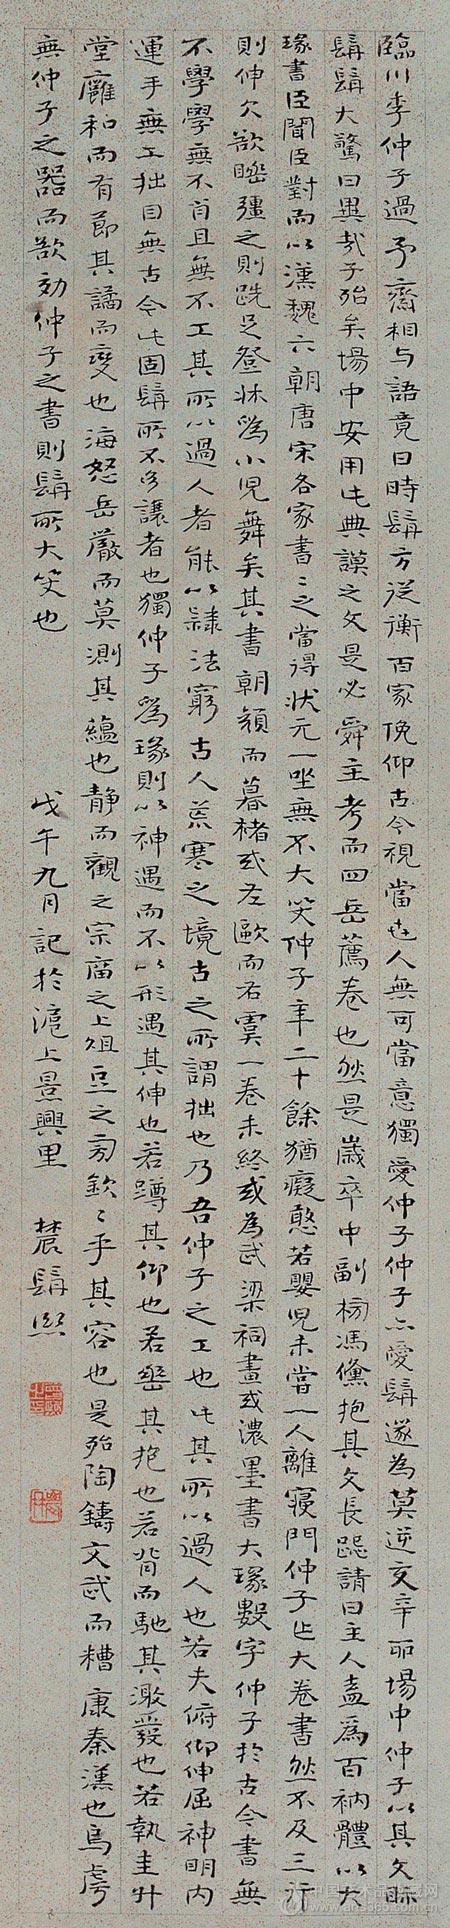 臨川李仲子過予齋相与語竟日時髯方從衡百家俛仰古今視當世人無可當意獨愛仲子仲子亦愛髯遂為莫逆交辛卯場中仲子以其文眎
髯髯大驚曰異哉子殆矣場中安用此典謨之文是必舜主考而四岳薦卷也然是歲卒中副榜馮儻抱其文長跽請曰主人盍為百衲體以大
琭書臣聞臣對而以漢魏六朝唐宋各家書書之當得狀元一坐無不大笑仲子年二十餘猶癡憨若嬰兒未嘗一人離寢門仲子作大卷書然不及三行
則伸欠欲瞌彊之則跣足登牀為小兒舞矣其書朝顏而暮楮或左歐而右虞一卷未終或為武梁祠畫或濃墨書大琭數字仲子於古今書無
不學學無不肖且無不工其所以過人者能以隸法窮古人荒寒之境古之所謂拙也乃吾仲子之工也此其所以過人也若夫俯仰伸屈神明內
運手無工拙目無古今此固髯所不多讓者也獨仲子為琭則以神遇而不以形遇其伸也若蹲其仰也若壑其抱也若背而馳其激發也若執圭升
堂雝和而有節其譎而變也海怒岳嚴而莫測其蘊也靜而觀之宗廟之上俎豆之旁欽欽乎其容也是殆陶鑄文武而糟康秦漢也烏虖
無仲子之器而欲効仲子之書則髯所大笑也
戊午九月記於滬上景興里 農髯熙
中国艺术品收藏网
www.ars365.com